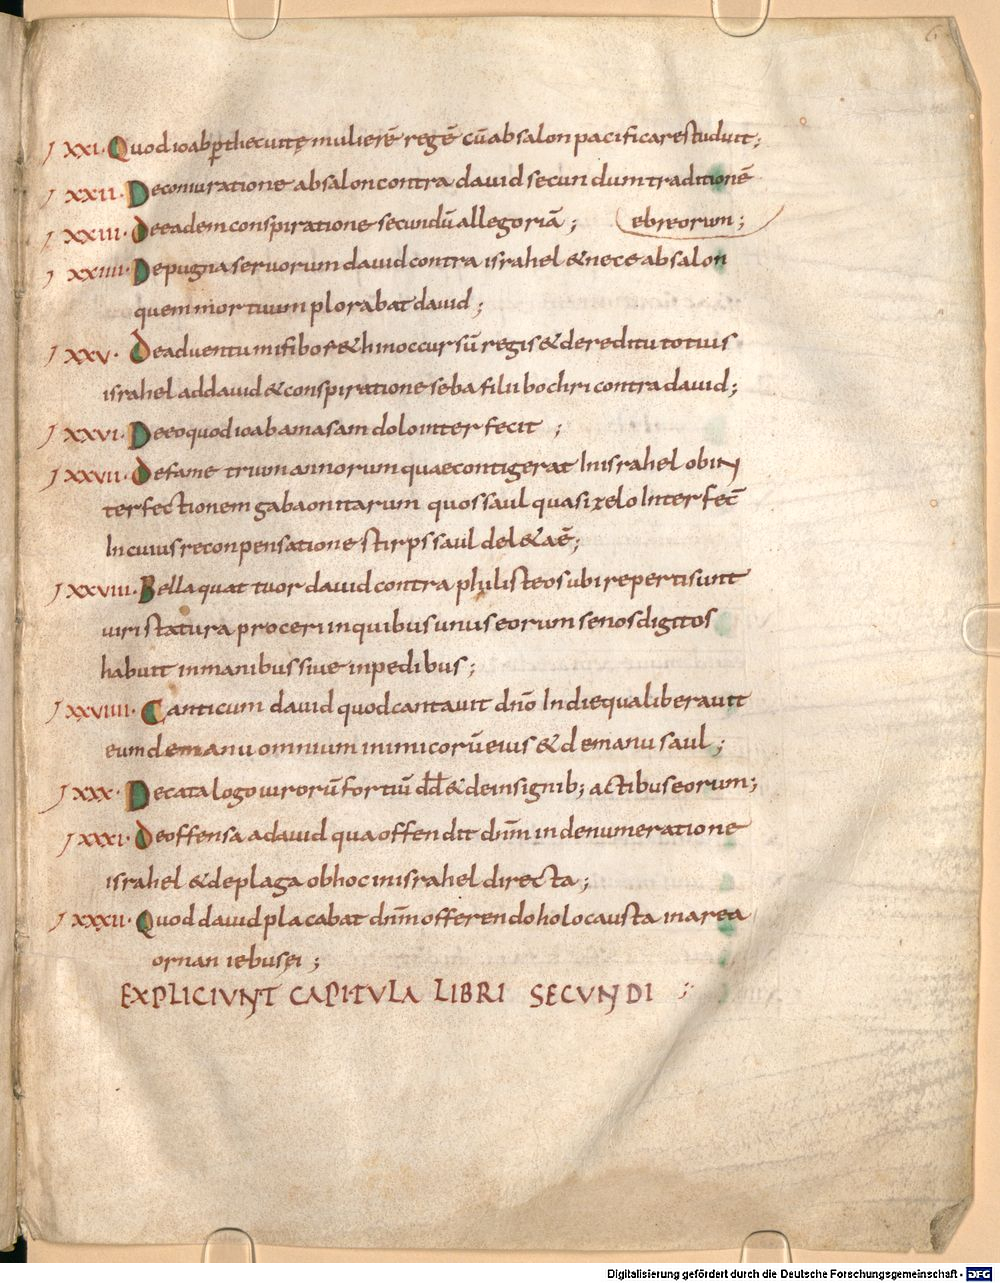 6
XXI. Quod ioab p thecuitę mulierē regē cū absalon pacificare studuit;
XXII. De coniuratione absalon contra dauid secundum traditionē
XXIII. De eadem conspiratione secundū allegoriā; ebreorum;
XXIIII. De pugna seruorum dauid contra israhel & nece absalon
quem mortuum plorabat dauid;
XXV. De aduentu mifiboseth in occursū regis & de reditu totius
israhel ad dauid & conspiratione seba filii bochri contra dauid;
XXVI. De eo quod ioab amasam dolo interfecit;
XXVII. De fame trium annorum quae contigerat in israhel ob in
terfectionem gabaonitarum quos saul quasi zelo interfec̄
In cuius reconpensatione stirps saul del&a ē;
XXVIII. Bella quattuor dauid contra philisteos ubi reperti sunt
uiri statura proceri in quibus unus eorum senos digitos
habuit in manibus siue in pedibus;
XXVIIII. Canticum dauid quod cantauit dn̄o In die qua liberauit
eum de manu omnium inimicorū eius & de manu saul;
XXX. De catalogo uirorū fortiū dd̄ & de insignib; actibus eorum;
XXXI. De offensa a dauid qua offendit dn̄m in denumeratione
israhel & de plaga ob hoc in israhel directa;
XXXII. Quod dauid placabat dn̄m offerendo holocausta in area
ornan iebusei;
EXPLICIUNT CAPITULA LIBRI SECUNDI ;
Digitalisierung gefördert durch die Deutsche Forschungsgemeinschaft - DFG